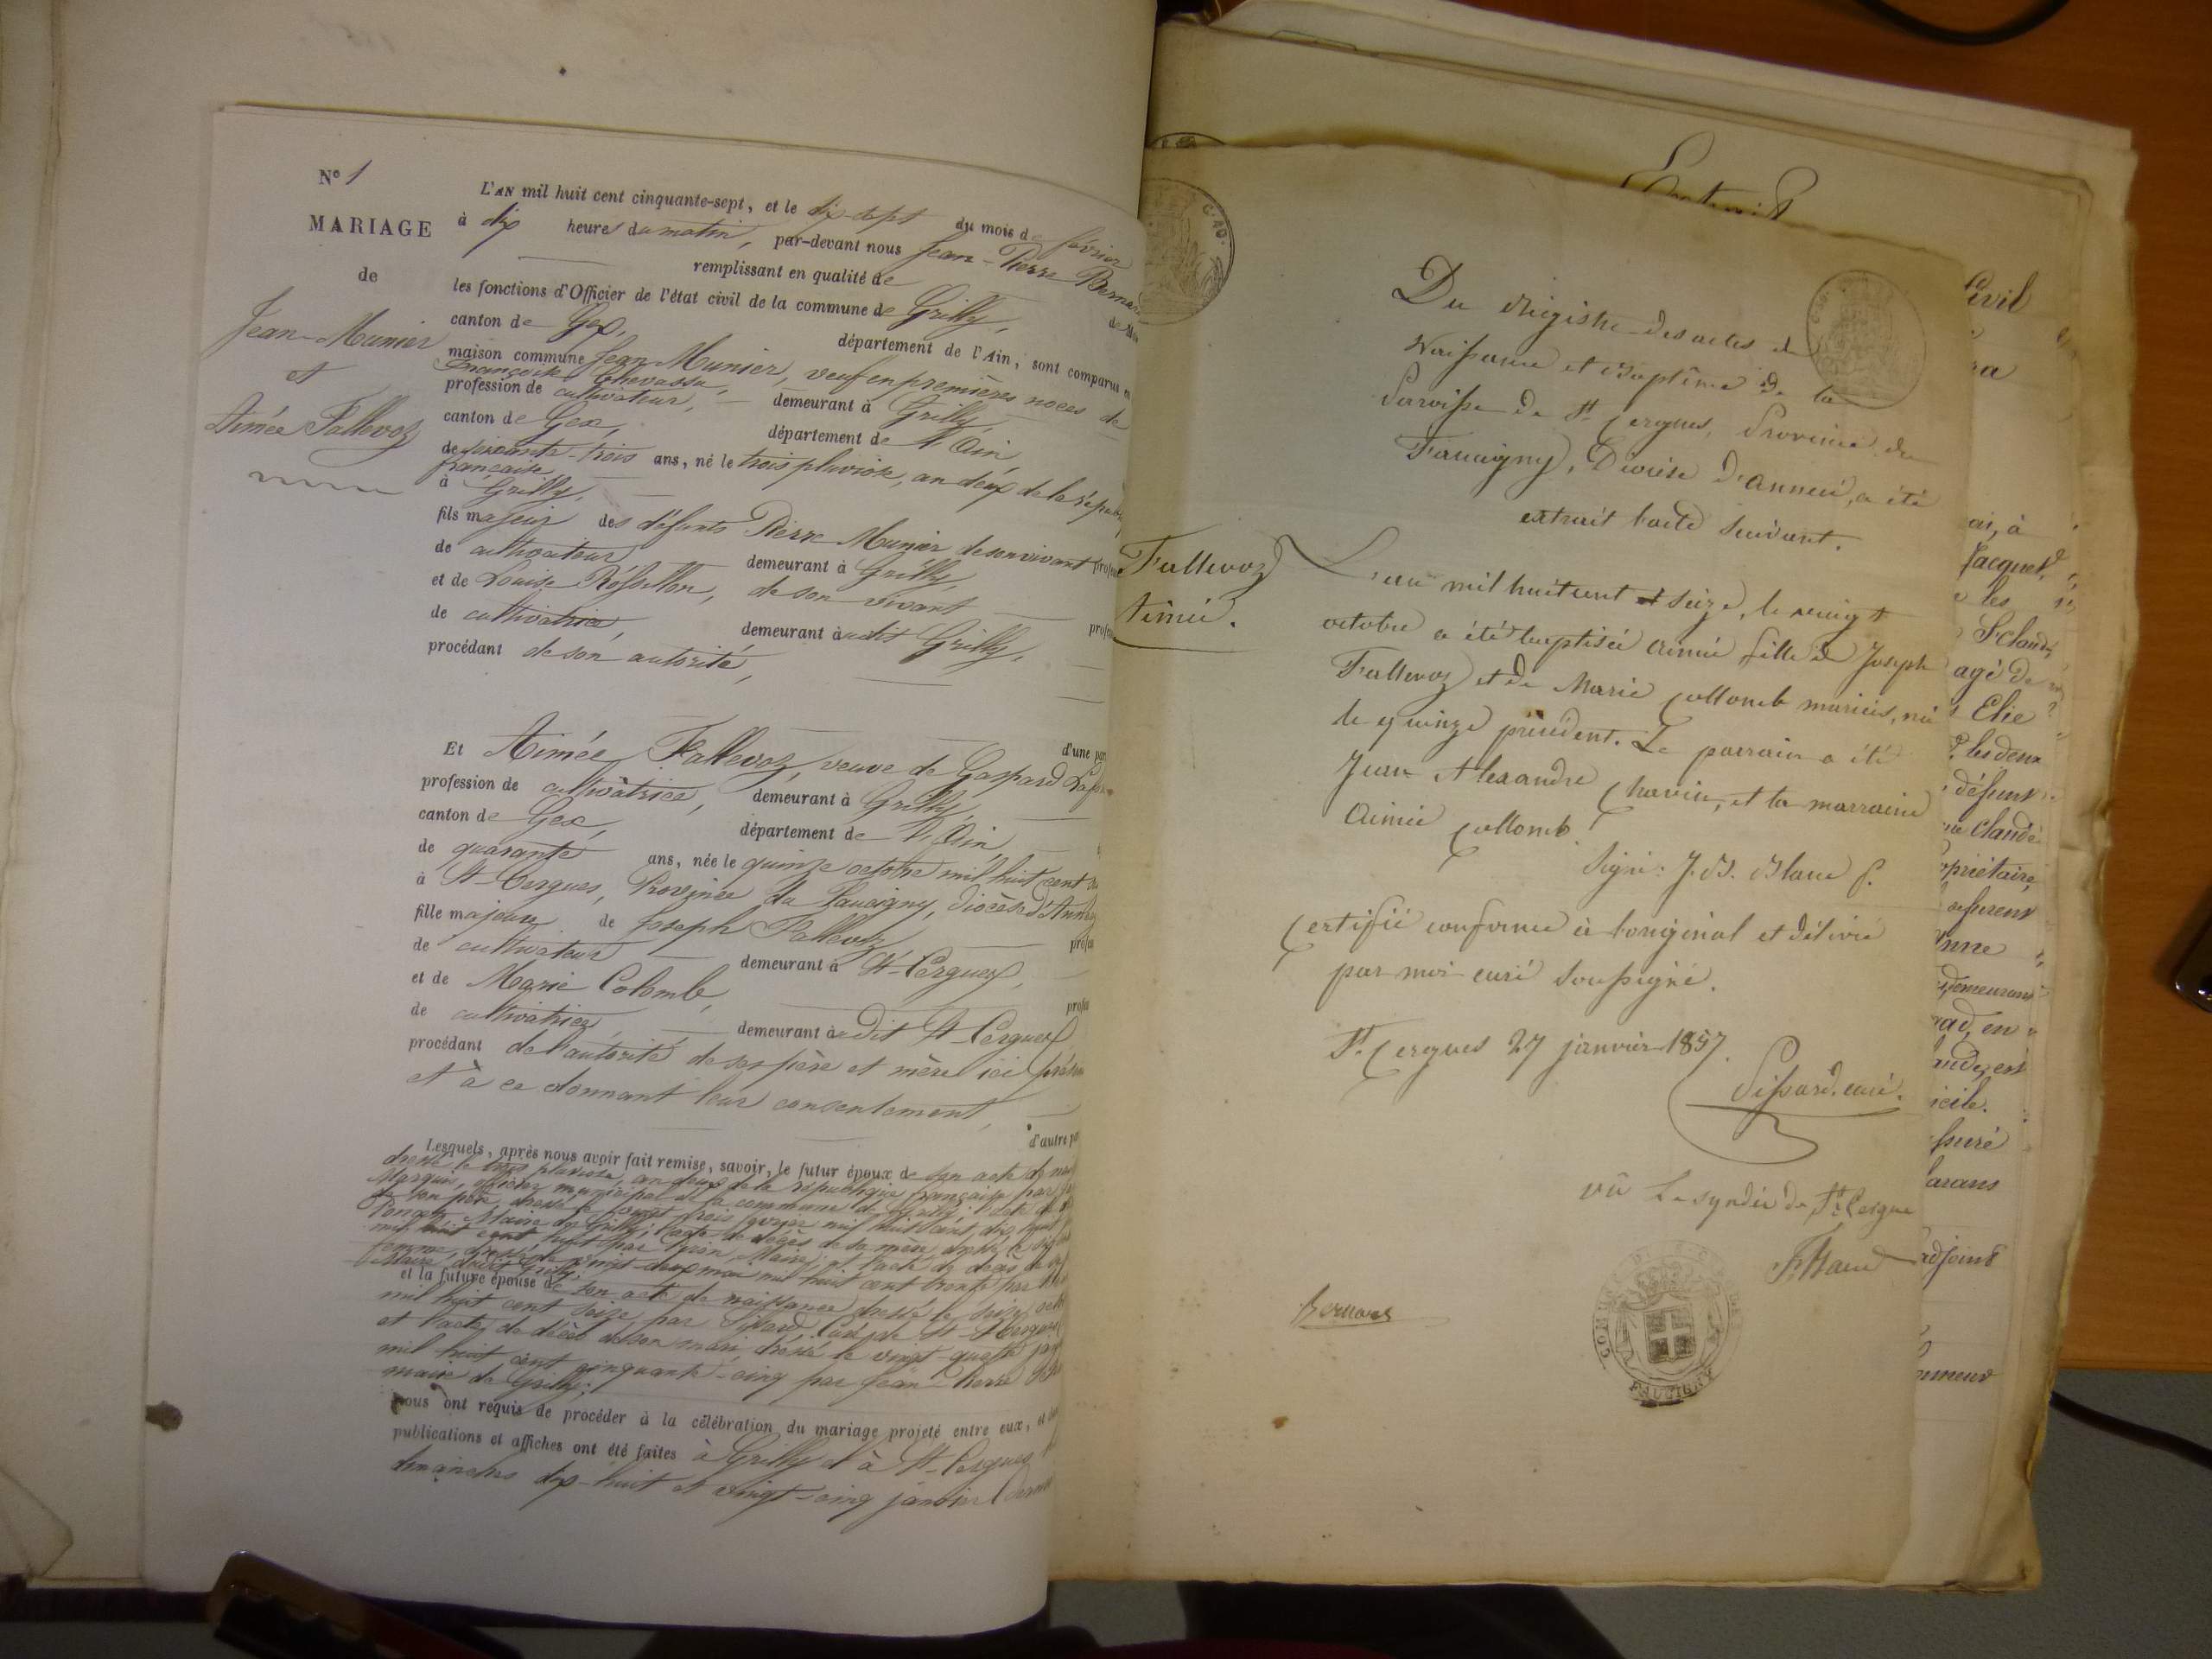 N° 1
MARIAGE
de
Jean Munier
et
Aimée Fallevoz
L'AN mil huit cent cinquante-sept, et le dix-sept du mois de février
à dix heures du matin, par-devant nous Jean-Pierre Bernard
remplissant en qualité de
les fonctions d'Officier de l'état civil de la commune de Grilly,
canton de Gex, département de l'Ain, sont comparus en
maison commune Jean Munier, veuf en premières noces de
Françoise Chevassu,
profession de cultivateur, demeurant à Grilly,
canton de Gex, département de l'Ain,
de soixante-trois ans, né le trois pluviose, an deux de la répub
française,
à Grilly,
fils majeur des défunts Pierre Munier de son vivant profes
de cultivateur demeurant à Grilly,
et de Louise Rossillon, de son vivant profes
de cultivatrice, demeurant audit Grilly,
procédant de son autorité,
d'une par
Et Aimée Fallevoz, veuve de Gaspard
profession de cultivatrice, demeurant à Grilly,
canton de Gex, département de l'Ain,
de quarante ans, née le quinze octobre mil huit cent
à St-Cergues, Province du Faucigny, diocèse d'Annecy
fille majeure de Joseph Fallevoz profes
de cultivateur demeurant à St-Cergues,
et de Marie Colomb, profes
de cultivatrice, demeurant audit St-Cergues
procédant de l'autorité de ses père et mère ici
et à ce donnant leur consentement,
d'autre pa
Lesquels, après nous avoir fait remise, savoir, le futur époux de son acte de
dressé le trois pluviose, an deux de la république française par
Marquis, officier municipal de la commune de Grilly; l'acte de
de son père, dressé le vingt-trois mil huit cent dix-huit
Maire de Grilly; l'acte de décès de sa mère dressé le
mil huit cent huit par Maire; et l'acte de décès de
femme, dressé le vingt-deux mai mil huit cent trente par
Maire dudit Grilly;
et la future épouse de son acte de naissance dressé le seize
mil huit cent seize par Pissard Curé de St-Cergues
et l'acte de décès de son mari dressé le vingt-quatre
mil huit cent cinquante-cinq par Jean-Pierre
maire de Grilly;
nous ont requis de procéder à la célébration du mariage projeté entre eux, et
publications et affiches ont été faites à Grilly et à St-Cergues
dimanches dix-huit et vingt-cinq janvier dernier
Extrait
Du Régistre des actes de
Naissance et Baptême de la
Paroisse de St Cergues, Province du
Faucigny, Diocèse d'Anneci, a été
extrait l'acte suivant.
Fallevoz
Aimée.
L'an mil huit cent et seize, le vingt
octobre a été baptisée Aimée fille de Joseph
Fallevoz et de Marie Collomb mariés, née
le quinze précédent. Le parrain a été
Jean Alexandre Chavin, et la marraine
Aimée Collomb.
Signé: J. B. Blanc C.
Certifié conforme à l'original et délivré
par moi curé soussigné.
St Cergues 27 janvier 1857.
Pissard, curé.
vû Le syndic de St Cergues
Bernard
COMMUNE
FAUCIGNY
Civil
ai, à
Jacquet,
les
St Claude,
agé de
Elie
les deux
défunt
Claude
opriétaire,
demeurant
en
icile.
adjoint